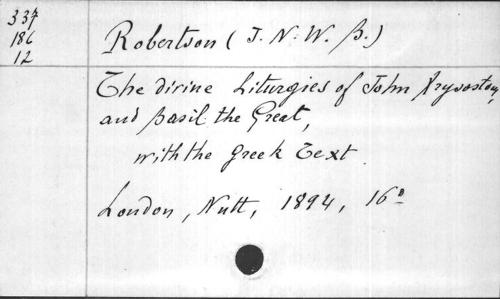 337
186
12
Robertson (J. N. W. B.)
The divine Liturgies of John Krysostom,
and Basil the Great,
with the Greek Text
London, Nutt, 1894, 16°